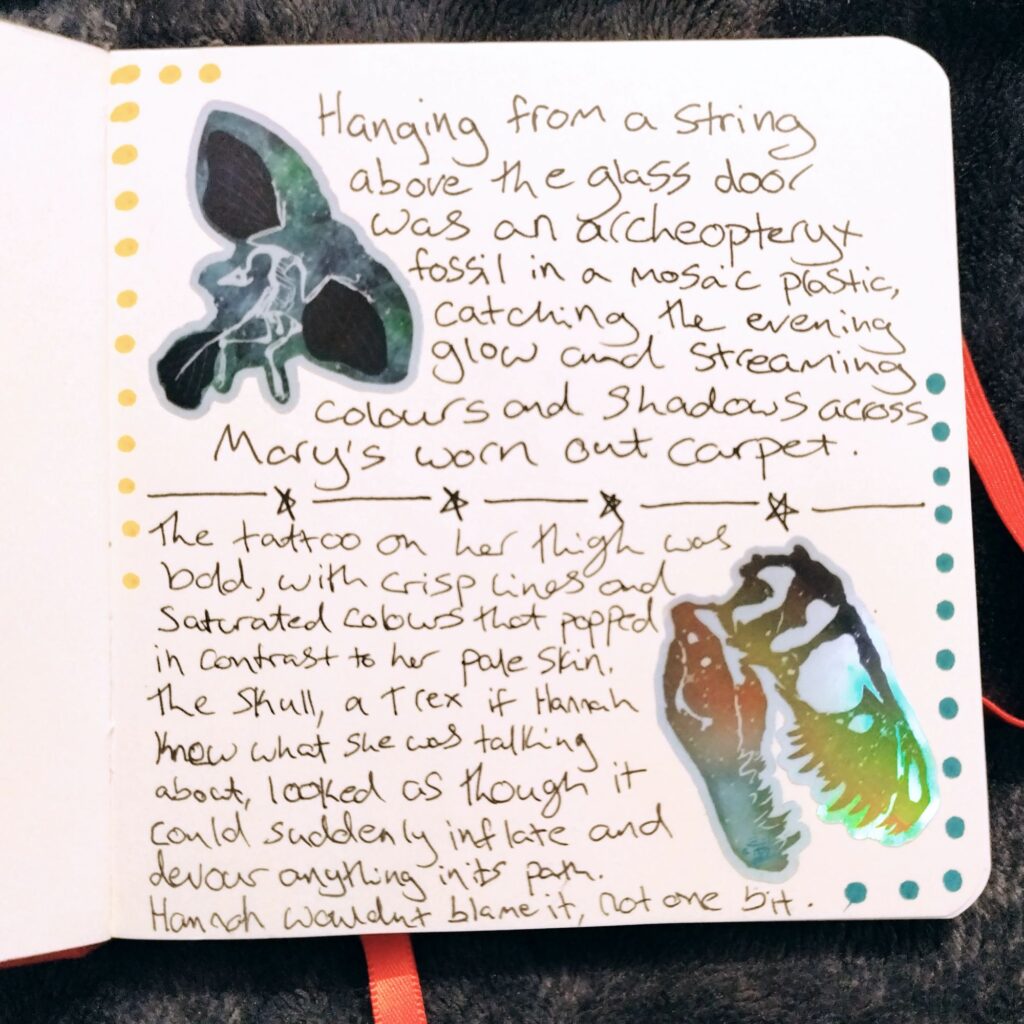 Hanging from a string
above the glass door
was an archeopteryx
fossil in a mosaic plastic,
catching the evening
glow and streaming
colours and shadows across
Mary's worn out carpet.
The tattoo on her thigh was
bold, with crisp lines and
saturated colours that popped
in contrast to her pale skin.
The skull, a T rex if Hannah
knew what she was talking
about, looked as though it
could suddenly inflate and
devour anything in its path.
Hannah wouldnt blame it, not one bit.